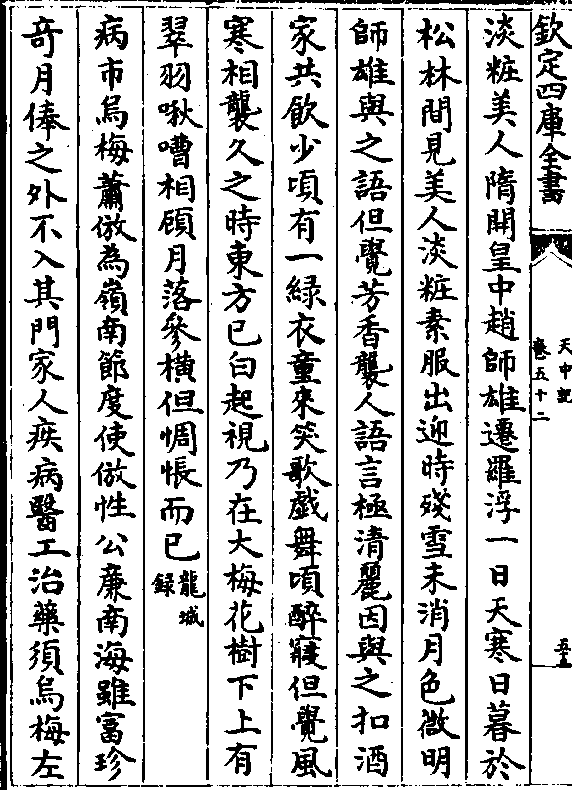 欽定四庫全書
天中記
卷五十二
五十五
淡粧美人隋開皇中趙師雄遷羅浮一日天寒日暮於
松林間見美人淡粧素服出迎時殘雪未消月色微明
師雄與之語但覺芳香襲人語言極清麗因與之扣酒
家共飲少頃有一綠衣童來笑歌戲舞頃醉寢但覺風
寒相襲久之時東方已白起視乃在大梅花樹下上有
翠羽啾嘈相顧月落參橫但惆悵而已龍城錄
病市烏梅蕭倣為嶺南節度使倣性公廉南海雖富珍
奇月俸之外不入其門家人疾病醫工治藥須烏梅左